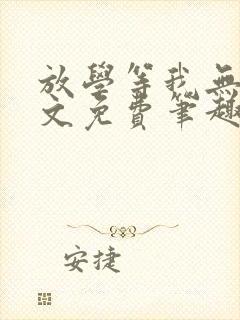 放學等我無
文免費筆趣
安捷